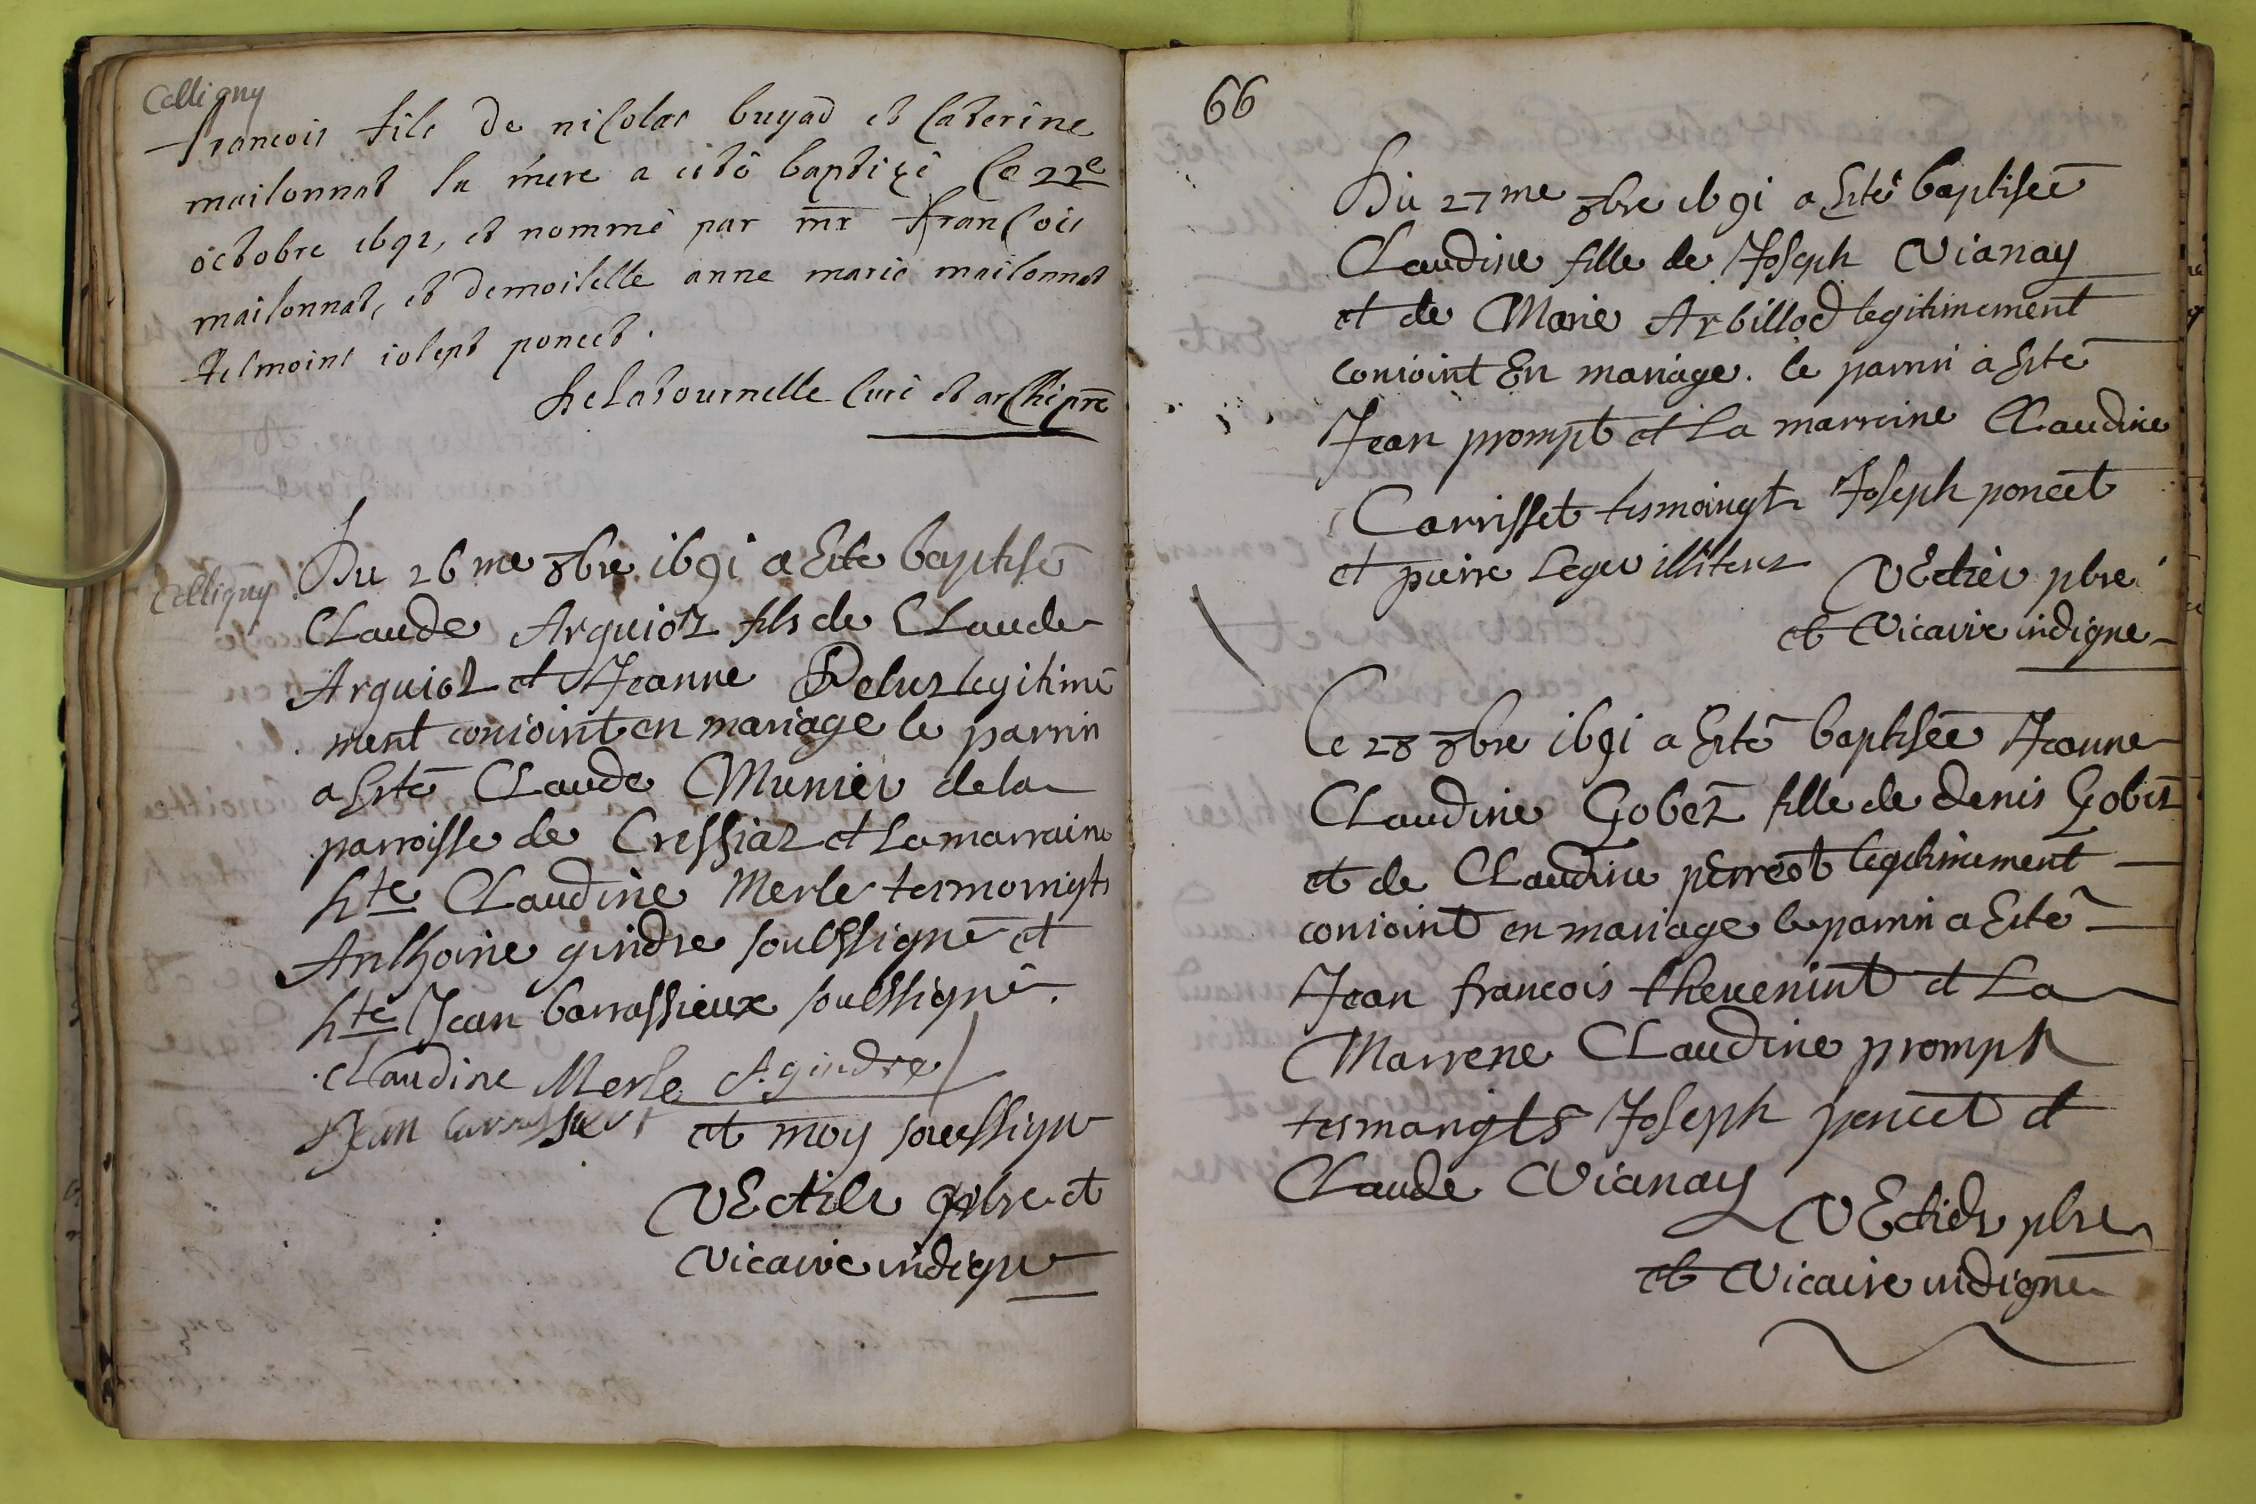 Celligny
francois fils de nicolas buyad et Caterine
maisonnat sa mere a esté baptizé Ce 22e
octobre 1691, et nommé par mr francois
maisonnat, et demoiselle anne marie maisonnat
tesmoins iosept poncet.
Delatournelle Curé et archiprē
Celligny
Du 26me 8bre 1691 a Este baptisé
Claude Arguiot fils de Claude
Arguiot et Jeanne Relus legitimé
ment conioint en mariage le parrin
a Esté Claude Munier de la
parroisse de Cressiaz et La marraine
hte Claudine Merle tesmoingts
Anthoine gindre soubssigné et
hte Jean barrassieux soubssigné.
claudine Merle A. gindre
Jean barrassieux et moy soussigne
VEctier pbre et
Vicaire indigne
66
Du 27me 8bre 1691 a Esté baptiseé
Claudine fille de Joseph Vianay
et de Marie Arbillod legitimement
conioint En mariage. le parrin a Esté
Jean prompt et La marraine Claudine
Carrisset tesmoingts Joseph poncet
et pierre Leger illiterez
VEctier pbre
et Vicaire indigne
Ce 28 8bre 1691 a Esté baptiseé Jeanne
Claudine Gobet fille de denis Gobet
et de Claudine perreot legitimement
conioint en mariage le parrin a Esté
Jean francois thevenint et La
Marrene Claudine prompt
tesmaingts Joseph poncet et
Claude Vianay
VEctier pbre
et Vicaire indigne